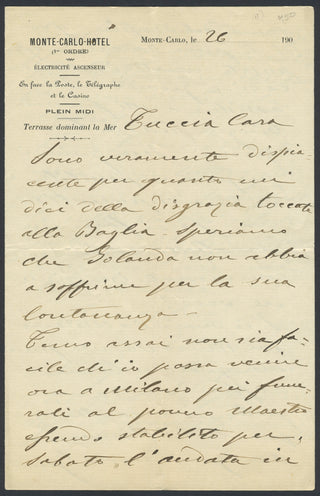 450
MONTE-CARLO-HÔTEL
(1er ORDRE)
ÉLECTRICITÉ ASCENSEUR
En face la Poste, le Télégraphe
et le Casino
PLEIN MIDI
Terrasse dominant la Mer
MONTE-CARLO, le 26 190
Tuccia Cara
Sono veramente dispia-
cente per quanto mi
dici della disgrazia toccata
alla Baglia. Speriamo
che Iolanda non abbia
a soffrirne per la sua
lontananza -
Temo assai non sia fa-
cile ch'io possa venire
ora a Milano pei fune-
rali al povero Maestro
essendo stabilito per
Sabato l'andata in